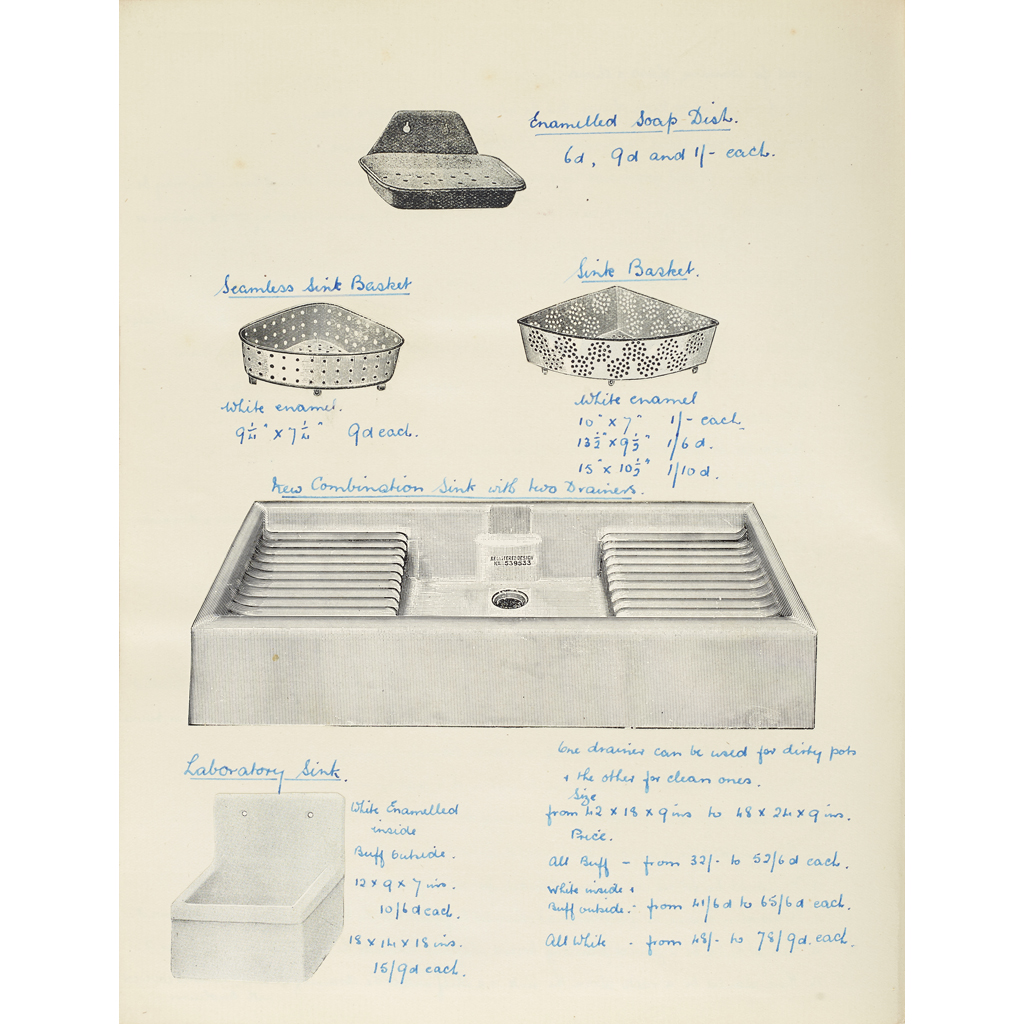 Enamelled Soap Dish.
6d, 9d and 1/- each.
Seamless Sink Basket
White enamel.
9 1/4" x 7 1/4" 9d each.
Sink Basket.
White enamel
10" x 7" 1/- each
13 1/2" x 9 1/2" 1/6d.
15" x 10 1/2" 1/10d.
New Combination Sink with two Drainers.
REGISTERED DESIGN
No. 539533
One drainer can be used for dirty pots
+ the other for clean ones.
Size
from 42 x 18 x 9 ins to 48 x 24 x 9 ins.
Price.
All Buff - from 32/- to 52/6d each.
White inside +
Buff outside - from 41/6d to 65/6d each.
All White - from 48/- to 78/9d. each.
Laboratory Sink.
White Enamelled
inside
Buff Outside.
12 x 9 x 7 ins.
10/6d each.
18 x 14 x 18 ins.
15/9d each.